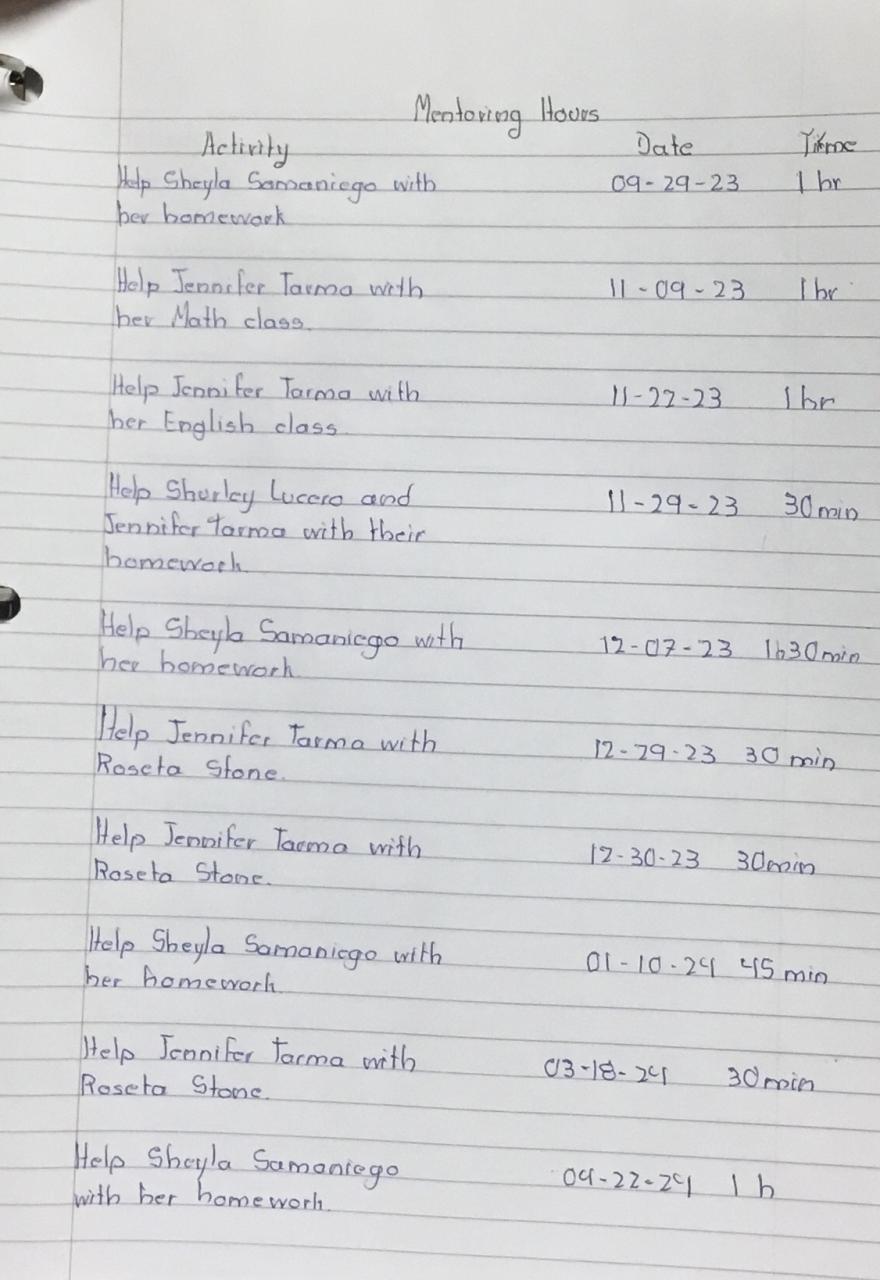 Mentoring Hours
Activity Date Time
Help Sheyla Samaniego with 09-29-23 1 hr
her homework
Help Jennifer Tarma with 11-09-23 1 hr
her Math class.
Help Jennifer Tarma with 11-22-23 1 hr
her English class
Help Shurley Lucero and 11-29-23 30 min
Jennifer Tarma with their
homework
Help Sheyla Samaniego with 12-07-23 1h30min
her homework
Help Jennifer Tarma with 12-29-23 30 min
Roseta Stone.
Help Jennifer Tarma with 12-30-23 30min
Roseta Stone.
Help Sheyla Samaniego with 01-10-24 45 min
her homework
Help Jennifer Tarma with 03-18-24 30min
Roseta Stone.
Help Sheyla Samaniego 04-22-24 1 h
with her homework.